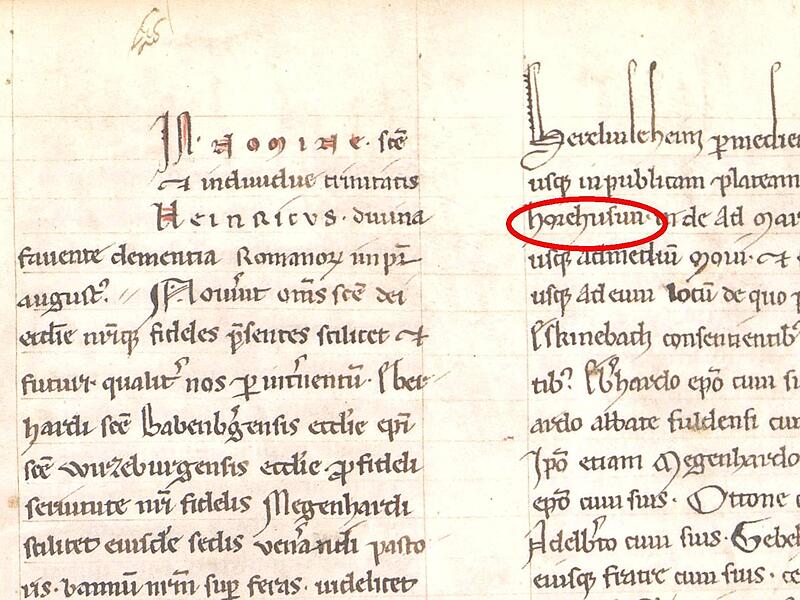 IN · NOMINE · scē
& indiuidue trinitatis
Heinricvs · diuina
fauente clementia Romanoꝝ impr̄
august᷒. Nouīnt om̄s scē dei
eccłie nr̄iqꝫ fideles p̄sentes scilicet &
futuri qualit̾ nos ꝑ int̾uentū · Eber
hardi scē babenb̾gensis eccłie ep̄i
scē wirzeburgensis eccłie · ꝓ fideli
seruitute nr̄i fidelis Megenhardi
scilicet eiusdē sedis ven̾andi pasto
ris · bannū nr̄m sup̾ feras · uidelicet
Hereluleheim ꝑmediem
usqꝫ in publicam plateam
horehusun · inde ad
usqꝫ ad mediū Moin · &
usqꝫ ad eum locū de quo
Eskinebach consentientib᷒
tib᷒ Eb̾hardo ep̄o cum
ardo abbate fuldensi cum
Ip̄o etiam Megenhardo
ep̄o cum suis · Ottone
Adelb̾to cum suis · Gebeh
eiusqꝫ fratre cum suis ·